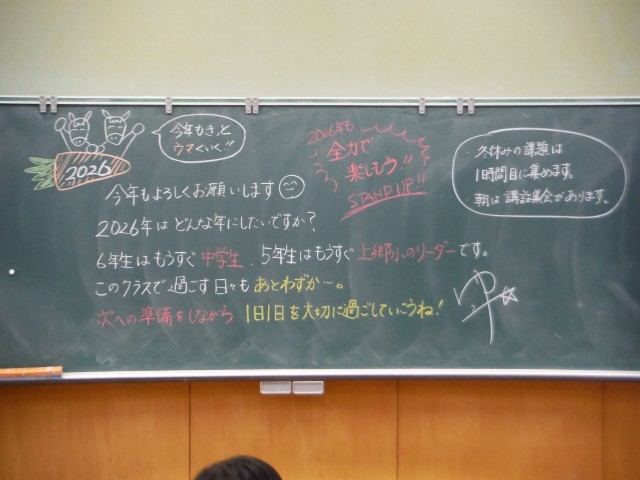 今年もきっと
ウマくいく!!
2026
2026年も
全力で
楽しもう!!
STAND UP!!
・冬休みの課題は
1時間目に集めます。
・朝は講話集会があります。
今年もよろしくお願いします
2026年はどんな年にしたいですか?
6年生はもうすぐ中学生、5年生はもうすぐ上郷小のリーダーです。
このクラスで過ごす日々もあとわずか…。
次への準備をしながら 1日1日を大切に過ごしていこうね!